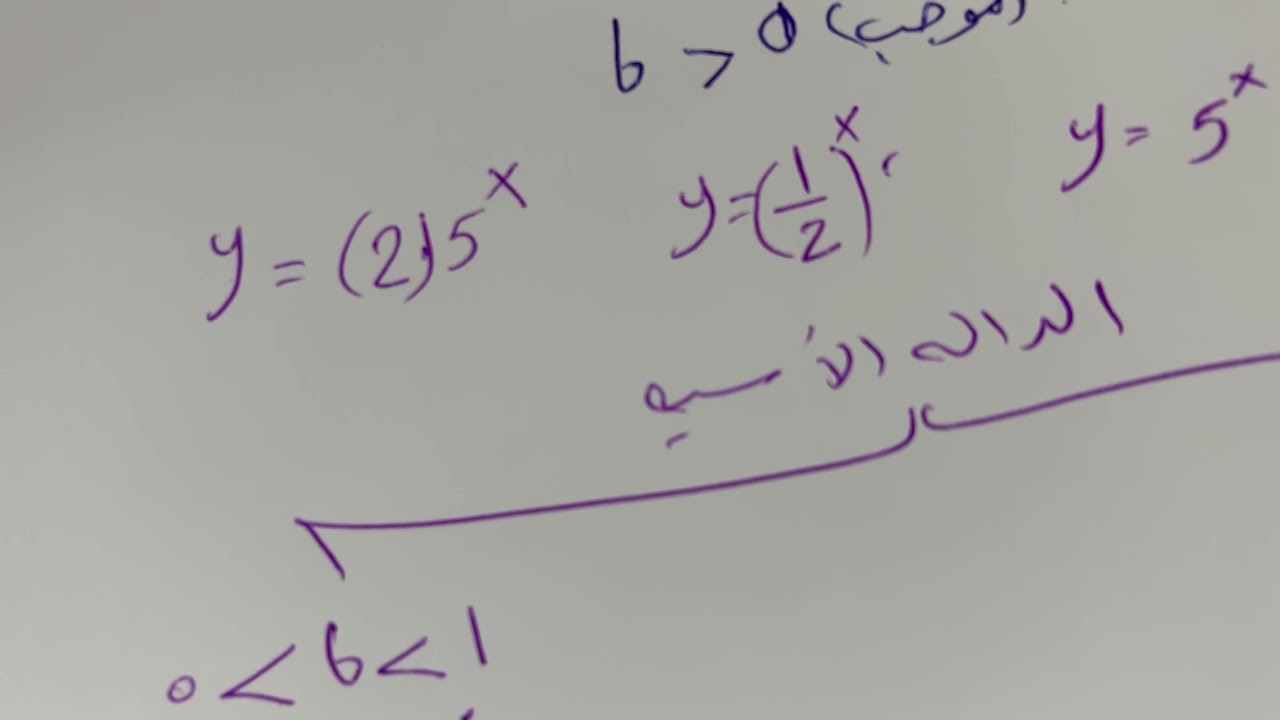 b > 0 (موجب)
y = 5^x
y = (1/2)^x ،
y = (2)5^x
الدالة الأسية
0 < b < 1